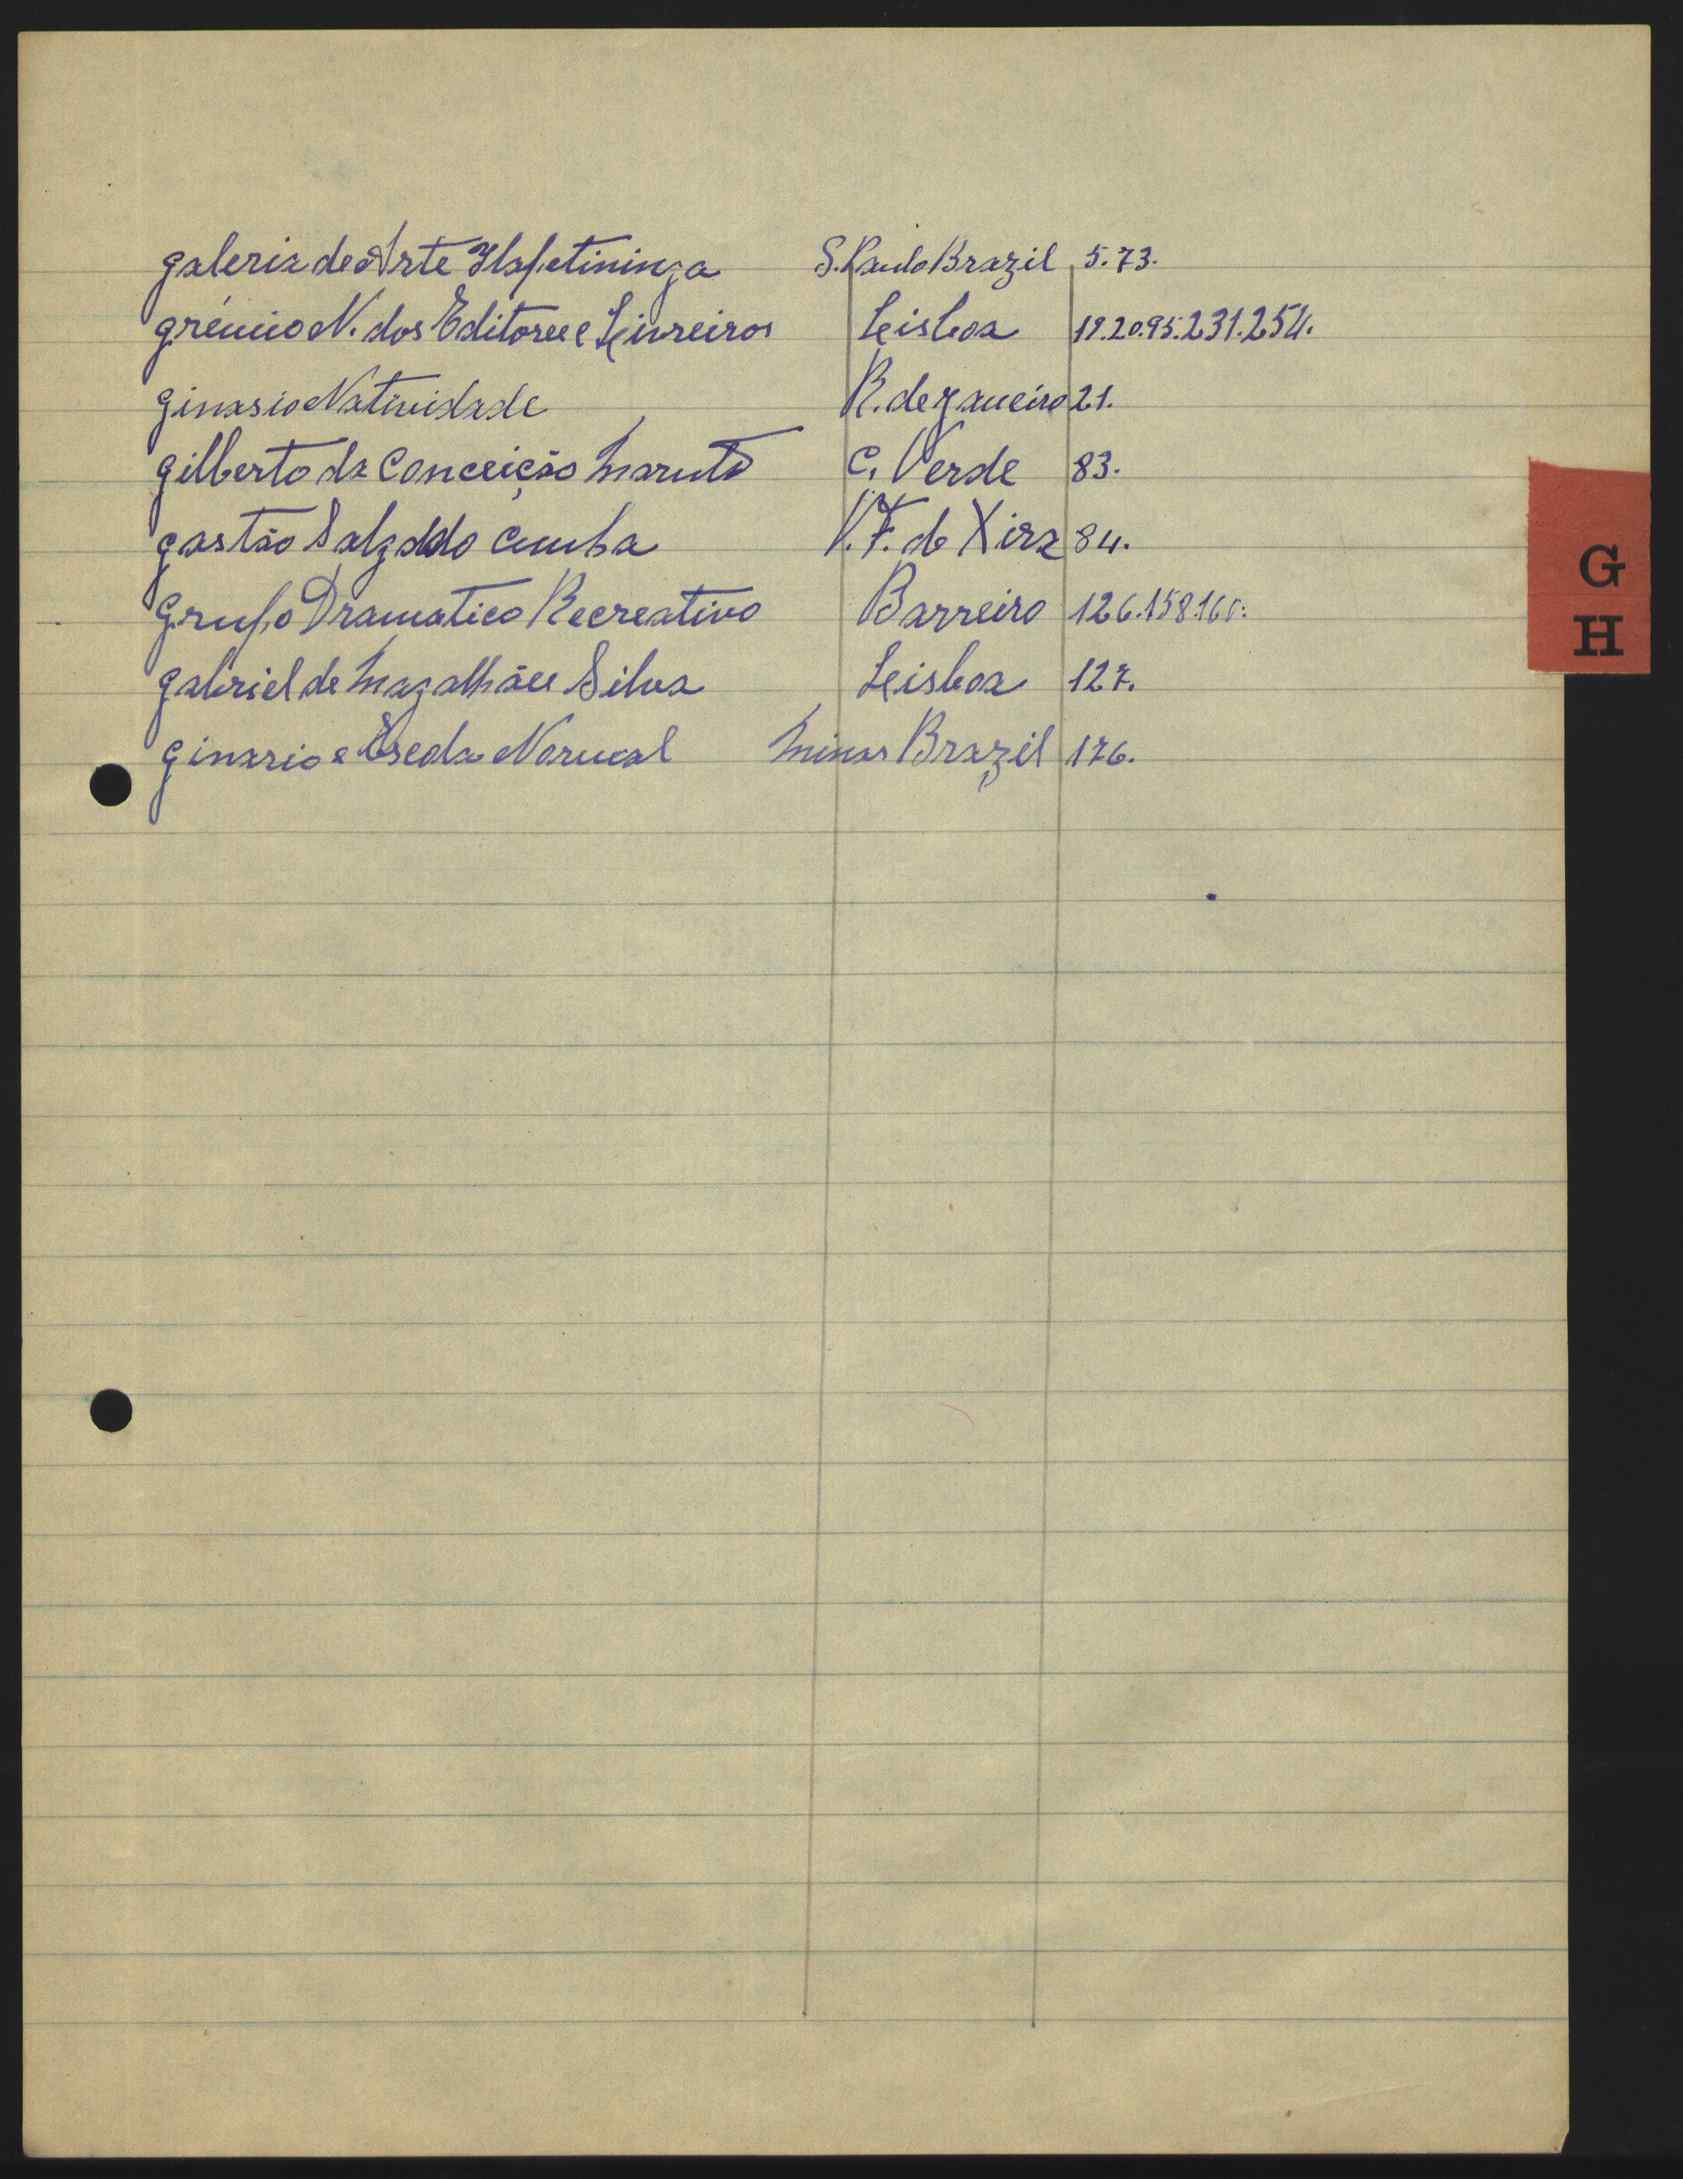 Galeria de Arte Itapetininga S. Paulo Brazil 5.73.
Grémio N. dos Editores e Livreiros Lisboa 19.20.95.231.254.
Ginasio Natividade R. de Janeiro 21.
Gilberto da Conceição C. Verde 83.
Gastão Salgado Cunha V. F. de Xira 84.
Grupo Dramatico Recreativo Barreiro 126.158.160.
Gabriel de Magalhães Silva Lisboa 127.
Ginasio e Escola Normal Minas Brazil 176.
G
H